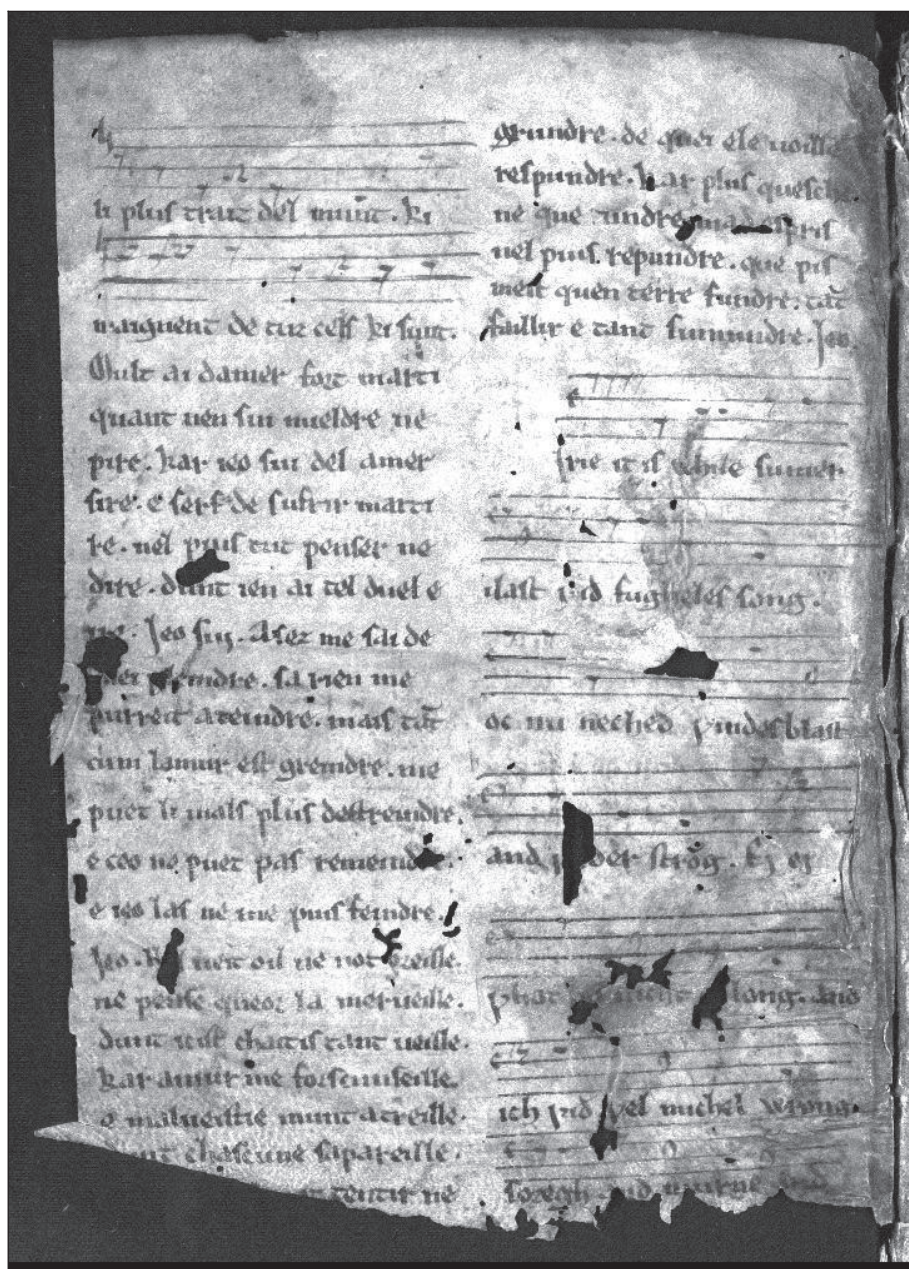 li plus traiz del munt. ki
maignent de tuz cels ki sunt.
Mult ai damer fort marti
quant nen sui mieldre ne
pire. kar ieo sui del amer
sire. e serf de sufrir marti
re. nel puis tut penser ne
dire. dunt ien ai tel duel e
Jeo sui. Asez me sai de
pleindre. sa rien me
purreit ateindre. mais tāt
cum lamur est greindre. me
puet li mals plus destreindre.
e ceo ne puet pas
e ieo las ne me puis feindre.
Jeo. neit oil ne not oreille.
ne pense queor la merueille.
dunt cist chaitis tant ueille.
kar amur me forscunseille.
e malueistie munt atreille.
chascune sapareille.
tentir ne
grundre. de quei ele uoille
respundre. kar plus quesche
ne que undre
nel puis repundre. que pis
meit quen terre fundre. tāt
faillir e tant sumundre. Jeo.
irie it is while sumer
ilast ƿid fugheles song.
oc nu neched ƿindes blast
and ƿeder strōg. Ej ej
ƿhat nicht long. and
ich ƿid ƿel michel wrong.
soregh and murne and